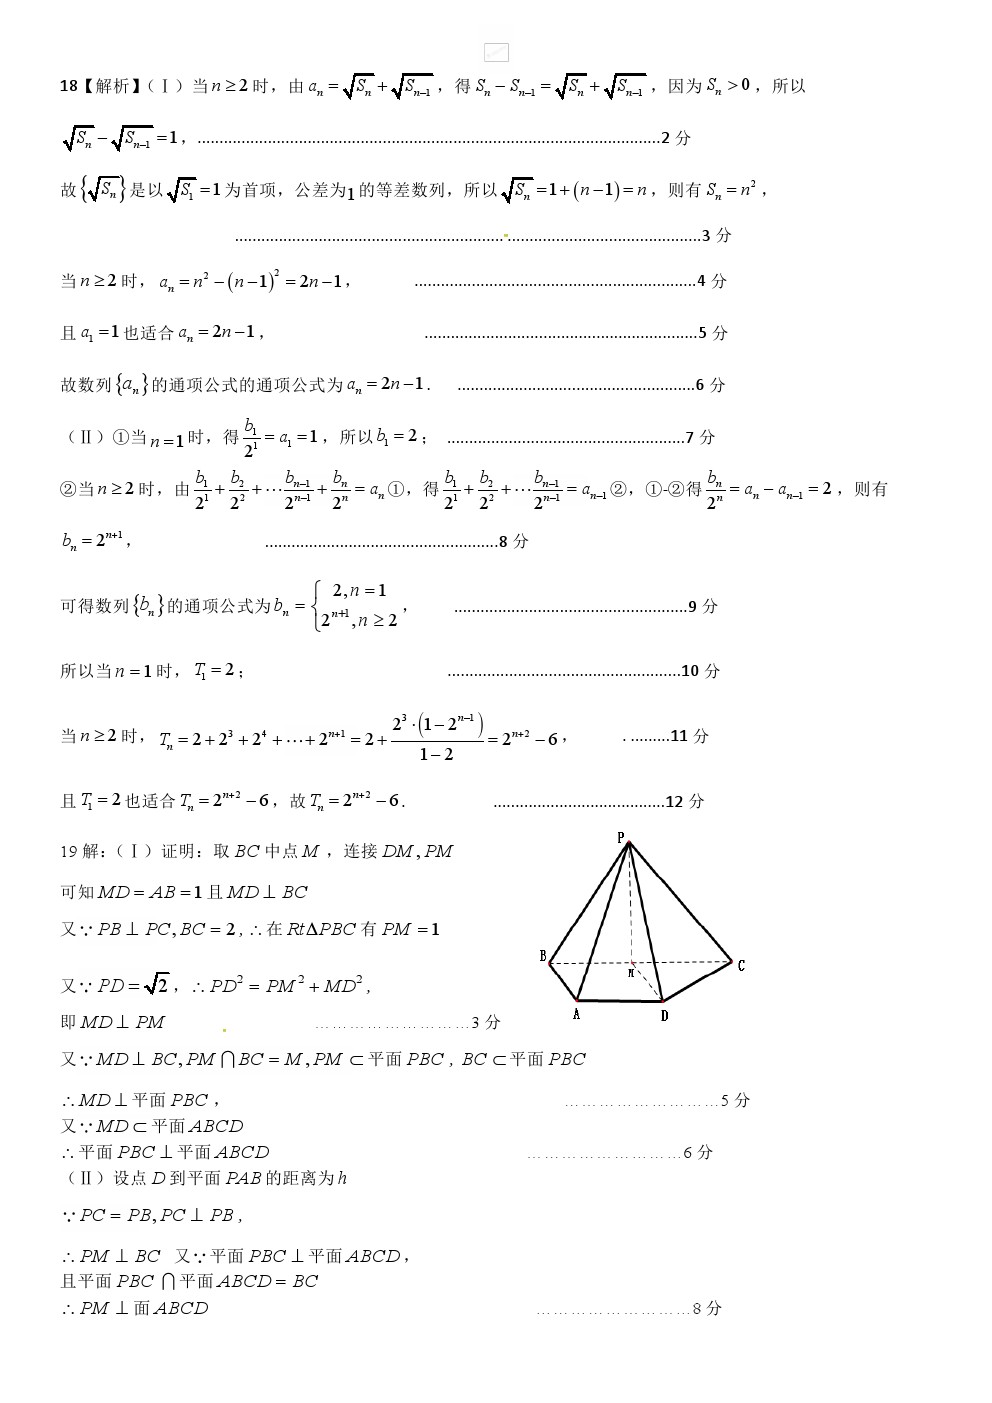 18【解析】（Ⅰ）当 n ≥ 2 时，由 aₙ = √Sₙ + √Sₙ₋₁，得 Sₙ − Sₙ₋₁ = √Sₙ + √Sₙ₋₁，因为 Sₙ > 0，所以
√Sₙ − √Sₙ₋₁ = 1，..........2 分
故 {√Sₙ} 是以 √S₁ = 1 为首项，公差为1 的等差数列，所以 √Sₙ = 1 + (n − 1) = n，则有 Sₙ = n²，
..........3 分
当 n ≥ 2 时，aₙ = n² − (n − 1)² = 2n − 1，..........4 分
且 a₁ = 1 也适合 aₙ = 2n − 1，..........5 分
故数列 {aₙ} 的通项公式的通项公式为 aₙ = 2n − 1．..........6 分
（Ⅱ）①当 n = 1 时，得 b₁/2¹ = a₁ = 1，所以 b₁ = 2；..........7 分
②当 n ≥ 2 时，由 b₁/2¹ + b₂/2² + ⋯ bₙ₋₁/2ⁿ⁻¹ + bₙ/2ⁿ = aₙ①，得 b₁/2¹ + b₂/2² + ⋯ bₙ₋₁/2ⁿ⁻¹ = aₙ₋₁②，①-②得 bₙ/2ⁿ = aₙ − aₙ₋₁ = 2，则有
bₙ = 2ⁿ⁺¹，..........8 分
可得数列 {bₙ} 的通项公式为 bₙ = { 2, n = 1
2ⁿ⁺¹, n ≥ 2，..........9 分
所以当 n = 1 时，T₁ = 2；..........10 分
当 n ≥ 2 时，Tₙ = 2 + 2³ + 2⁴ + ⋯ + 2ⁿ⁺¹ = 2 + 2³·(1 − 2ⁿ⁻¹)/(1 − 2) = 2ⁿ⁺² − 6，..........11 分
且 T₁ = 2 也适合 Tₙ = 2ⁿ⁺² − 6，故 Tₙ = 2ⁿ⁺² − 6．..........12 分
19 解：（Ⅰ）证明：取 BC 中点 M ，连接 DM , PM
可知 MD = AB = 1 且 MD ⊥ BC
又∵ PB ⊥ PC, BC = 2 , ∴ 在 RtΔPBC 有 PM = 1
又∵ PD = √2，∴ PD² = PM² + MD² ,
即 MD ⊥ PM ………………………3 分
又∵ MD ⊥ BC, PM ⋂ BC = M, PM ⊂ 平面 PBC , BC ⊂ 平面 PBC
∴ MD ⊥ 平面 PBC ，………………………5 分
又∵ MD ⊂ 平面 ABCD
∴ 平面 PBC ⊥ 平面 ABCD ………………………6 分
（Ⅱ）设点 D 到平面 PAB 的距离为 h
∵ PC = PB, PC ⊥ PB ,
∴ PM ⊥ BC 又∵ 平面 PBC ⊥ 平面 ABCD，
且平面 PBC ⋂ 平面 ABCD = BC
∴ PM ⊥ 面 ABCD ………………………8 分
P
B
C
M
A
D